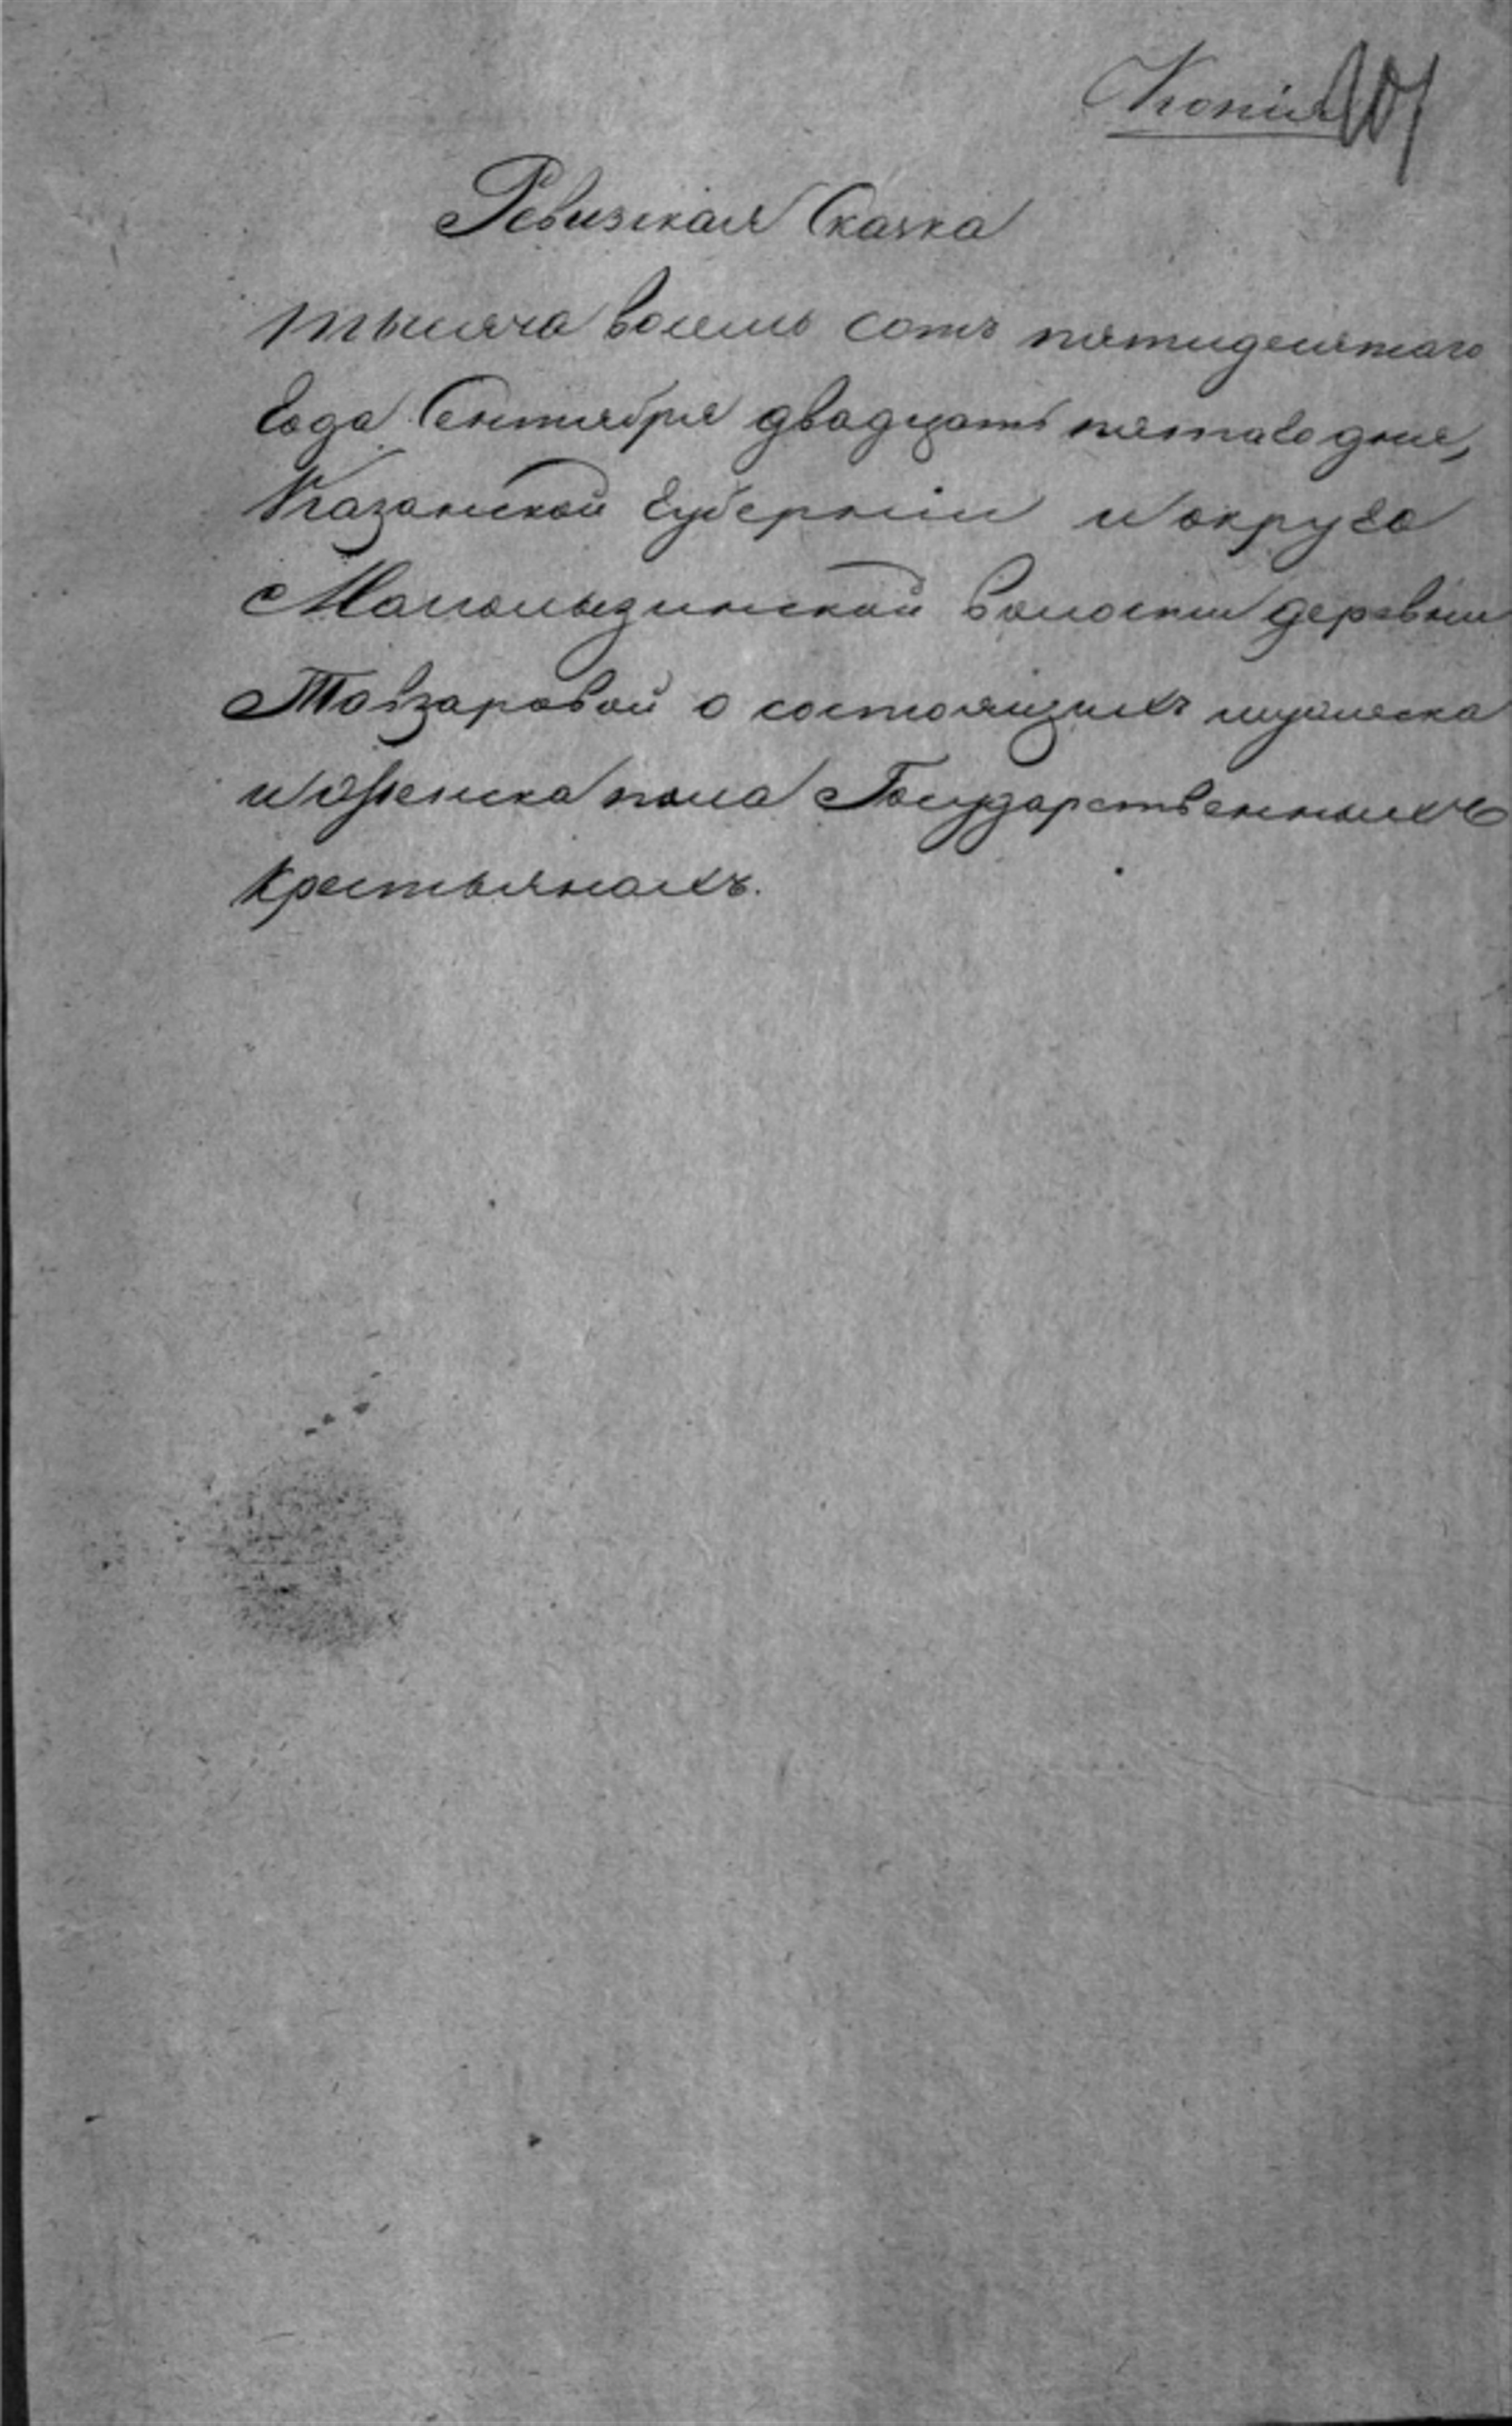 Копія 101
Ревизская Сказка
тысяча восемь сотъ пятидесятаго
года Сентября двадцать пятаго дня,
Казанской губерніи и округа
волости деревни
о состоящихъ мужеска
и женска пола Государственныхъ
крестьянахъ.